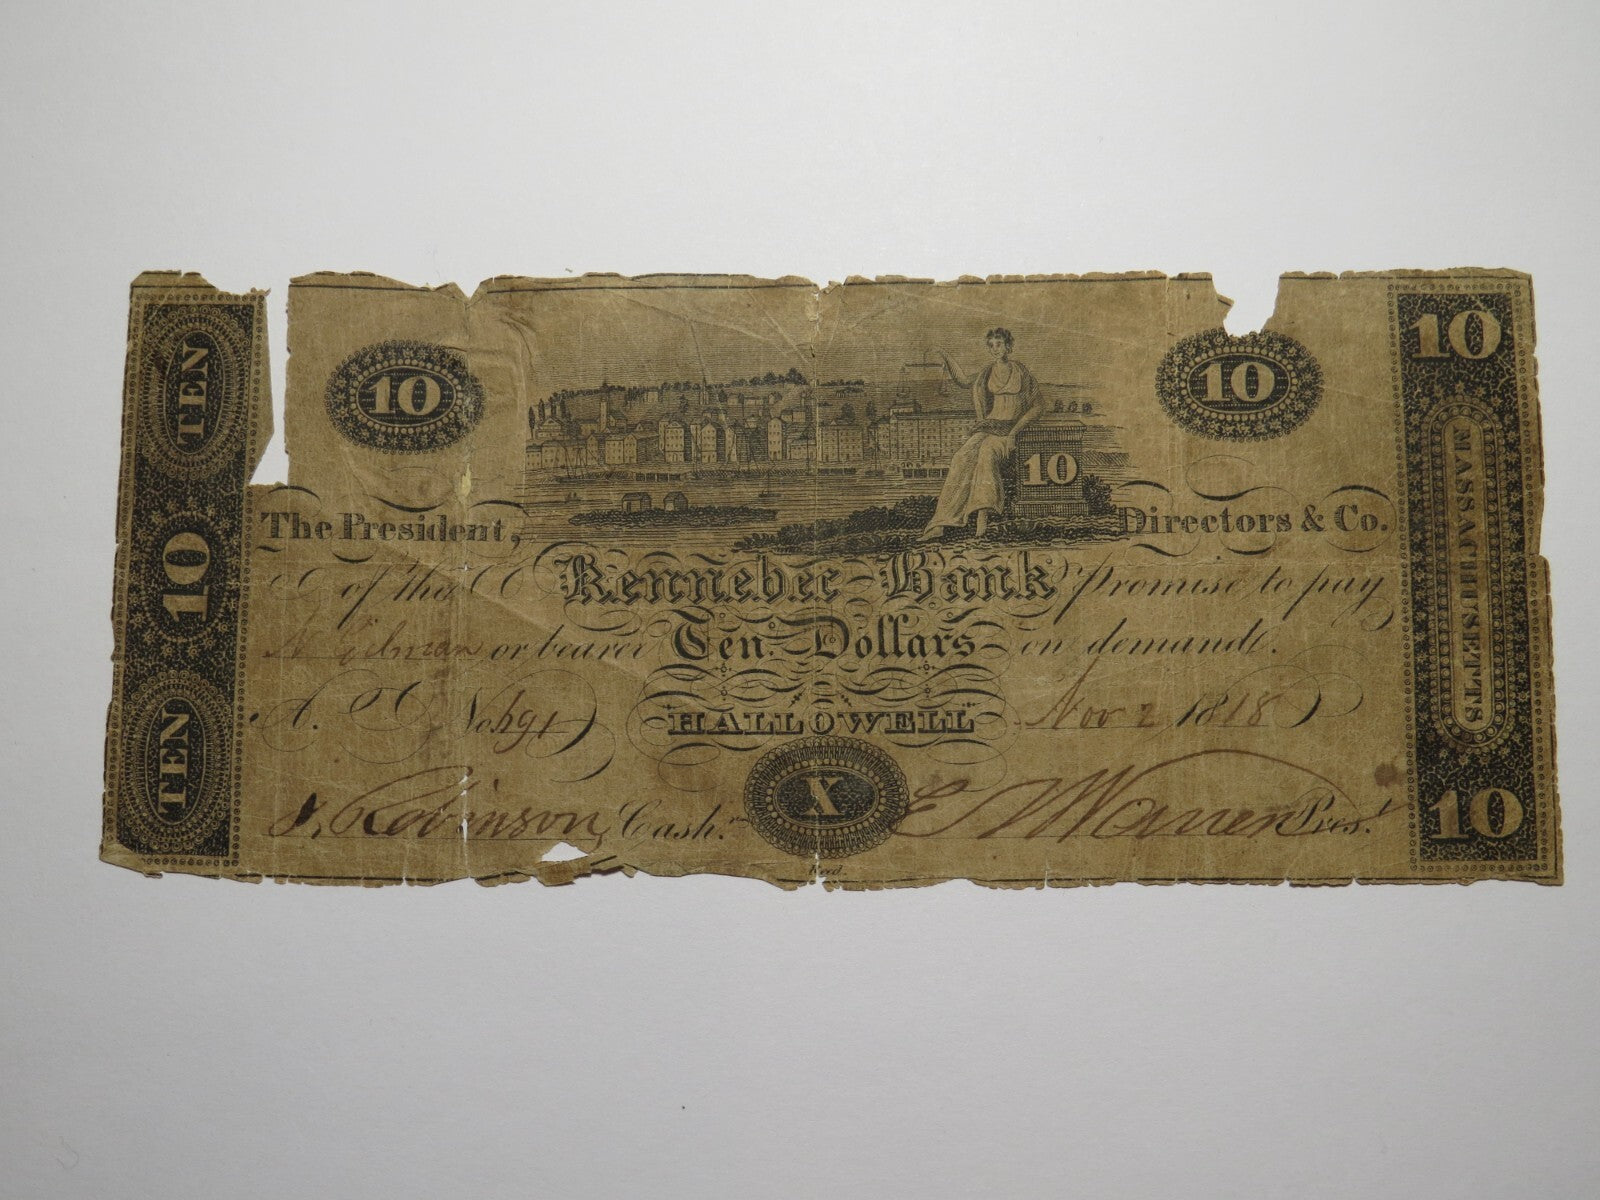 TEN
10
TEN
10
10
10
The President, Directors & Co.
of the Kennebec Bank promise to pay
N Gilman or bearer Ten Dollars on demand.
A. No. 691 HALLOWELL Nov 2 1818
X
J. Robinson Cash.r E Warren Pres.t
Reed.
10
MASSACHUSETTS
10